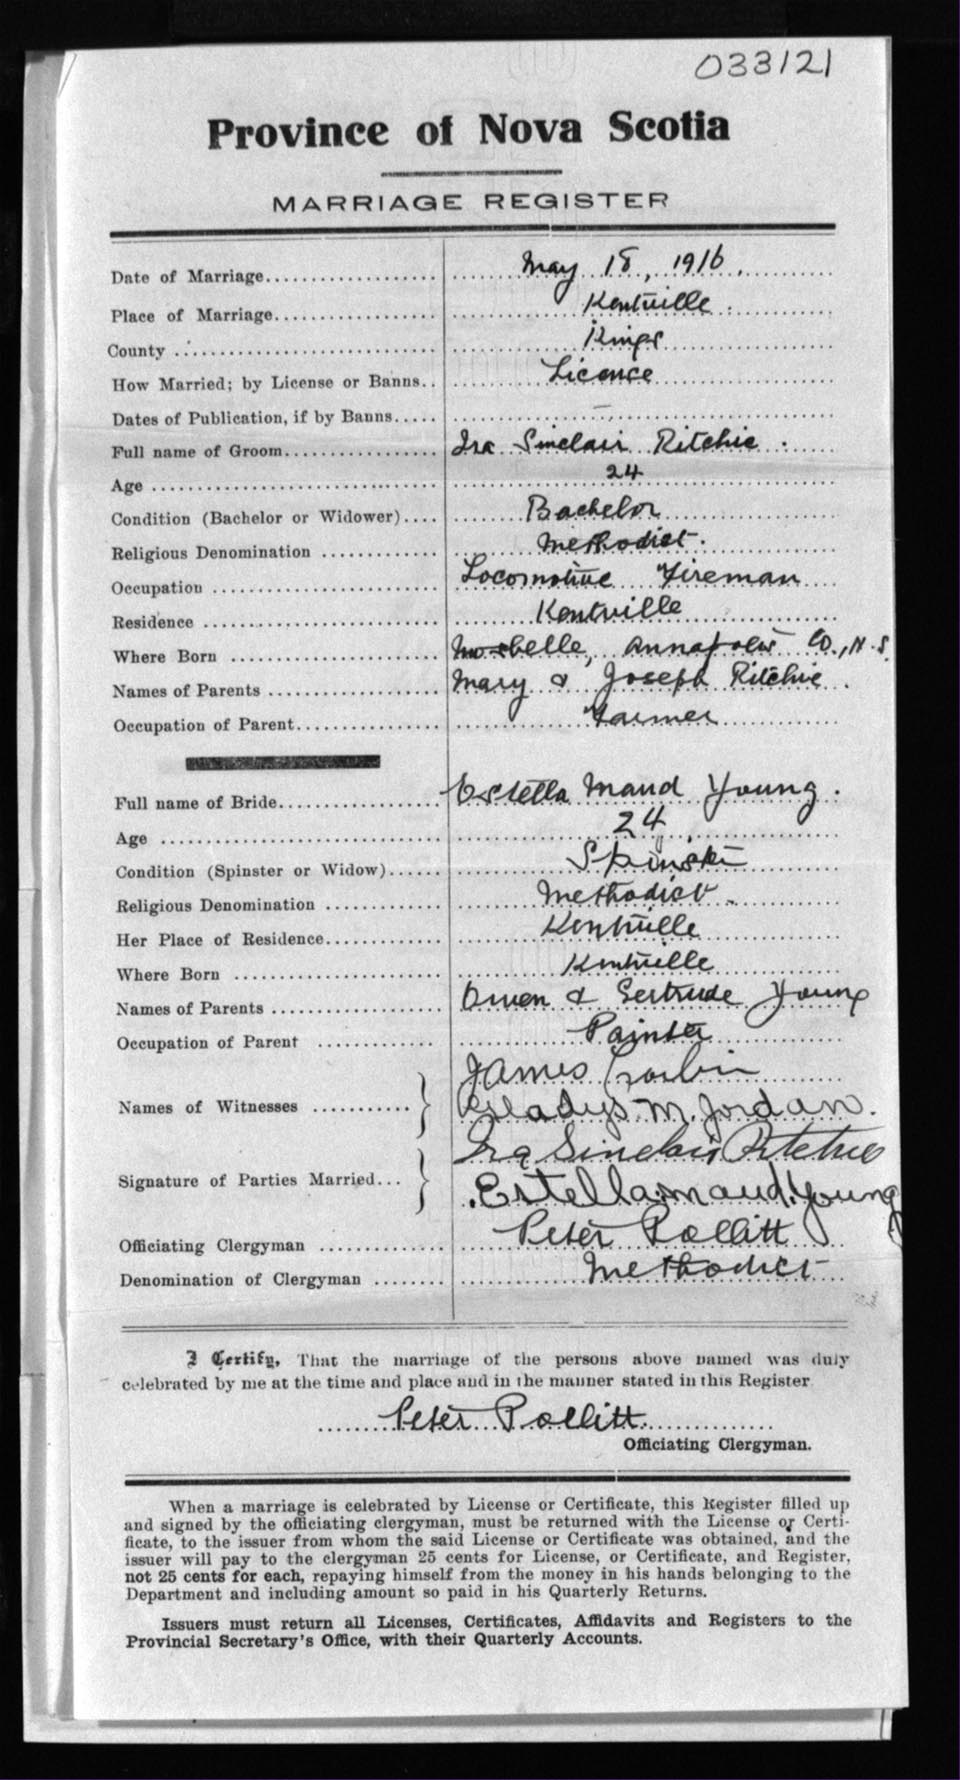 033121
Province of Nova Scotia
MARRIAGE REGISTER
Date of Marriage................... May 18, 1916.
Place of Marriage.................. Kentville.
County ............................ Kings
How Married; by License or Banns.. Licence
Dates of Publication, if by Banns..... —
Full name of Groom................. Ira Sinclair Ritchie.
Age ............................... 24
Condition (Bachelor or Widower).... Bachelor
Religious Denomination ............ Methodist.
Occupation ........................ Locomotive Fireman
Residence ......................... Kentville
Where Born ........................ Annapolis Co., N.S.
Names of Parents .................. Mary & Joseph Ritchie.
Occupation of Parent............... Farmer
Full name of Bride................. Estella Maud Young.
Age ............................... 24
Condition (Spinster or Widow)...... Spinster
Religious Denomination ............ Methodist
Her Place of Residence............. Kentville
Where Born ........................ Kentville
Names of Parents .................. Owen & Gertrude Young
Occupation of Parent ............. Painter
James Corbin
Names of Witnesses ........... Gladys M. Jordan.
Ira Sinclair Ritchie
Signature of Parties Married... Estella Maud Young
Officiating Clergyman ............. Peter Pollitt
Denomination of Clergyman ........ Methodist
I Certify, That the marriage of the persons above named was duly
celebrated by me at the time and place and in the manner stated in this Register
Peter Pollitt
Officiating Clergyman.
When a marriage is celebrated by License or Certificate, this Register filled up
and signed by the officiating clergyman, must be returned with the License or Certi-
ficate, to the issuer from whom the said License or Certificate was obtained, and the
issuer will pay to the clergyman 25 cents for License, or Certificate, and Register,
not 25 cents for each, repaying himself from the money in his hands belonging to the
Department and including amount so paid in his Quarterly Returns.
Issuers must return all Licenses, Certificates, Affidavits and Registers to the
Provincial Secretary's Office, with their Quarterly Accounts.